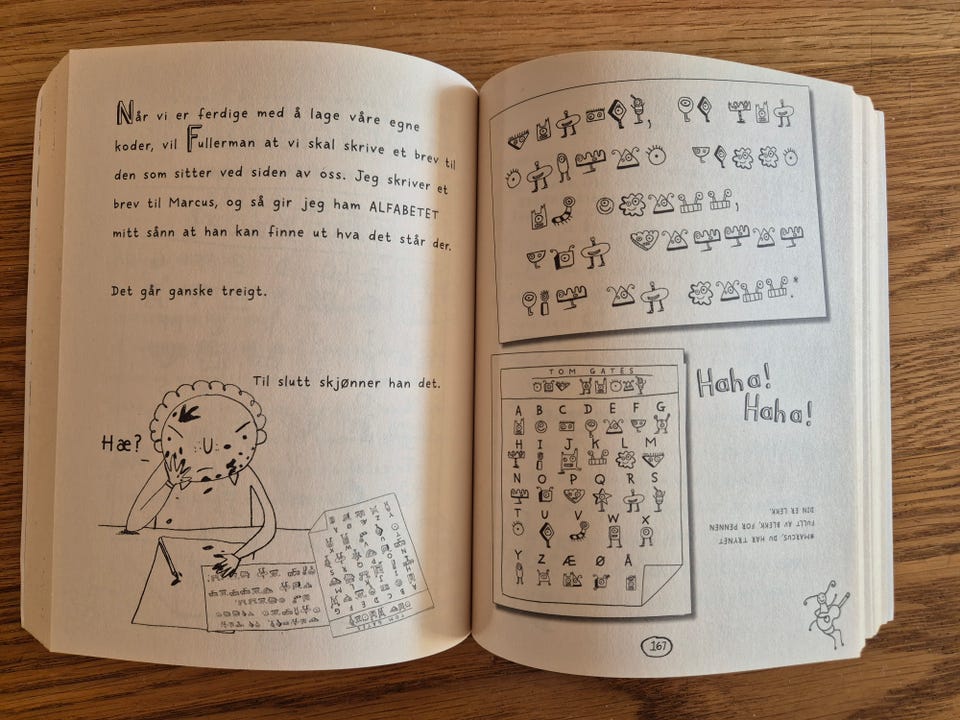 Når vi er ferdige med å lage våre egne
koder, vil Fullerman at vi skal skrive et brev til
den som sitter ved siden av oss. Jeg skriver et
brev til Marcus, og så gir jeg ham ALFABETET
mitt sånn at han kan finne ut hva det står der.
Det går ganske treigt.
Til slutt skjønner han det.
Hæ?
TOM GATES
A B C D E F G
H I J K L M
N O P Q R S
T U V W X
Y Z Æ Ø Å
Haha!
Haha!
*MARCUS, DU HAR TRYNET
FULLT AV BLEKK, FOR PENNEN
DIN ER LEKK.
167